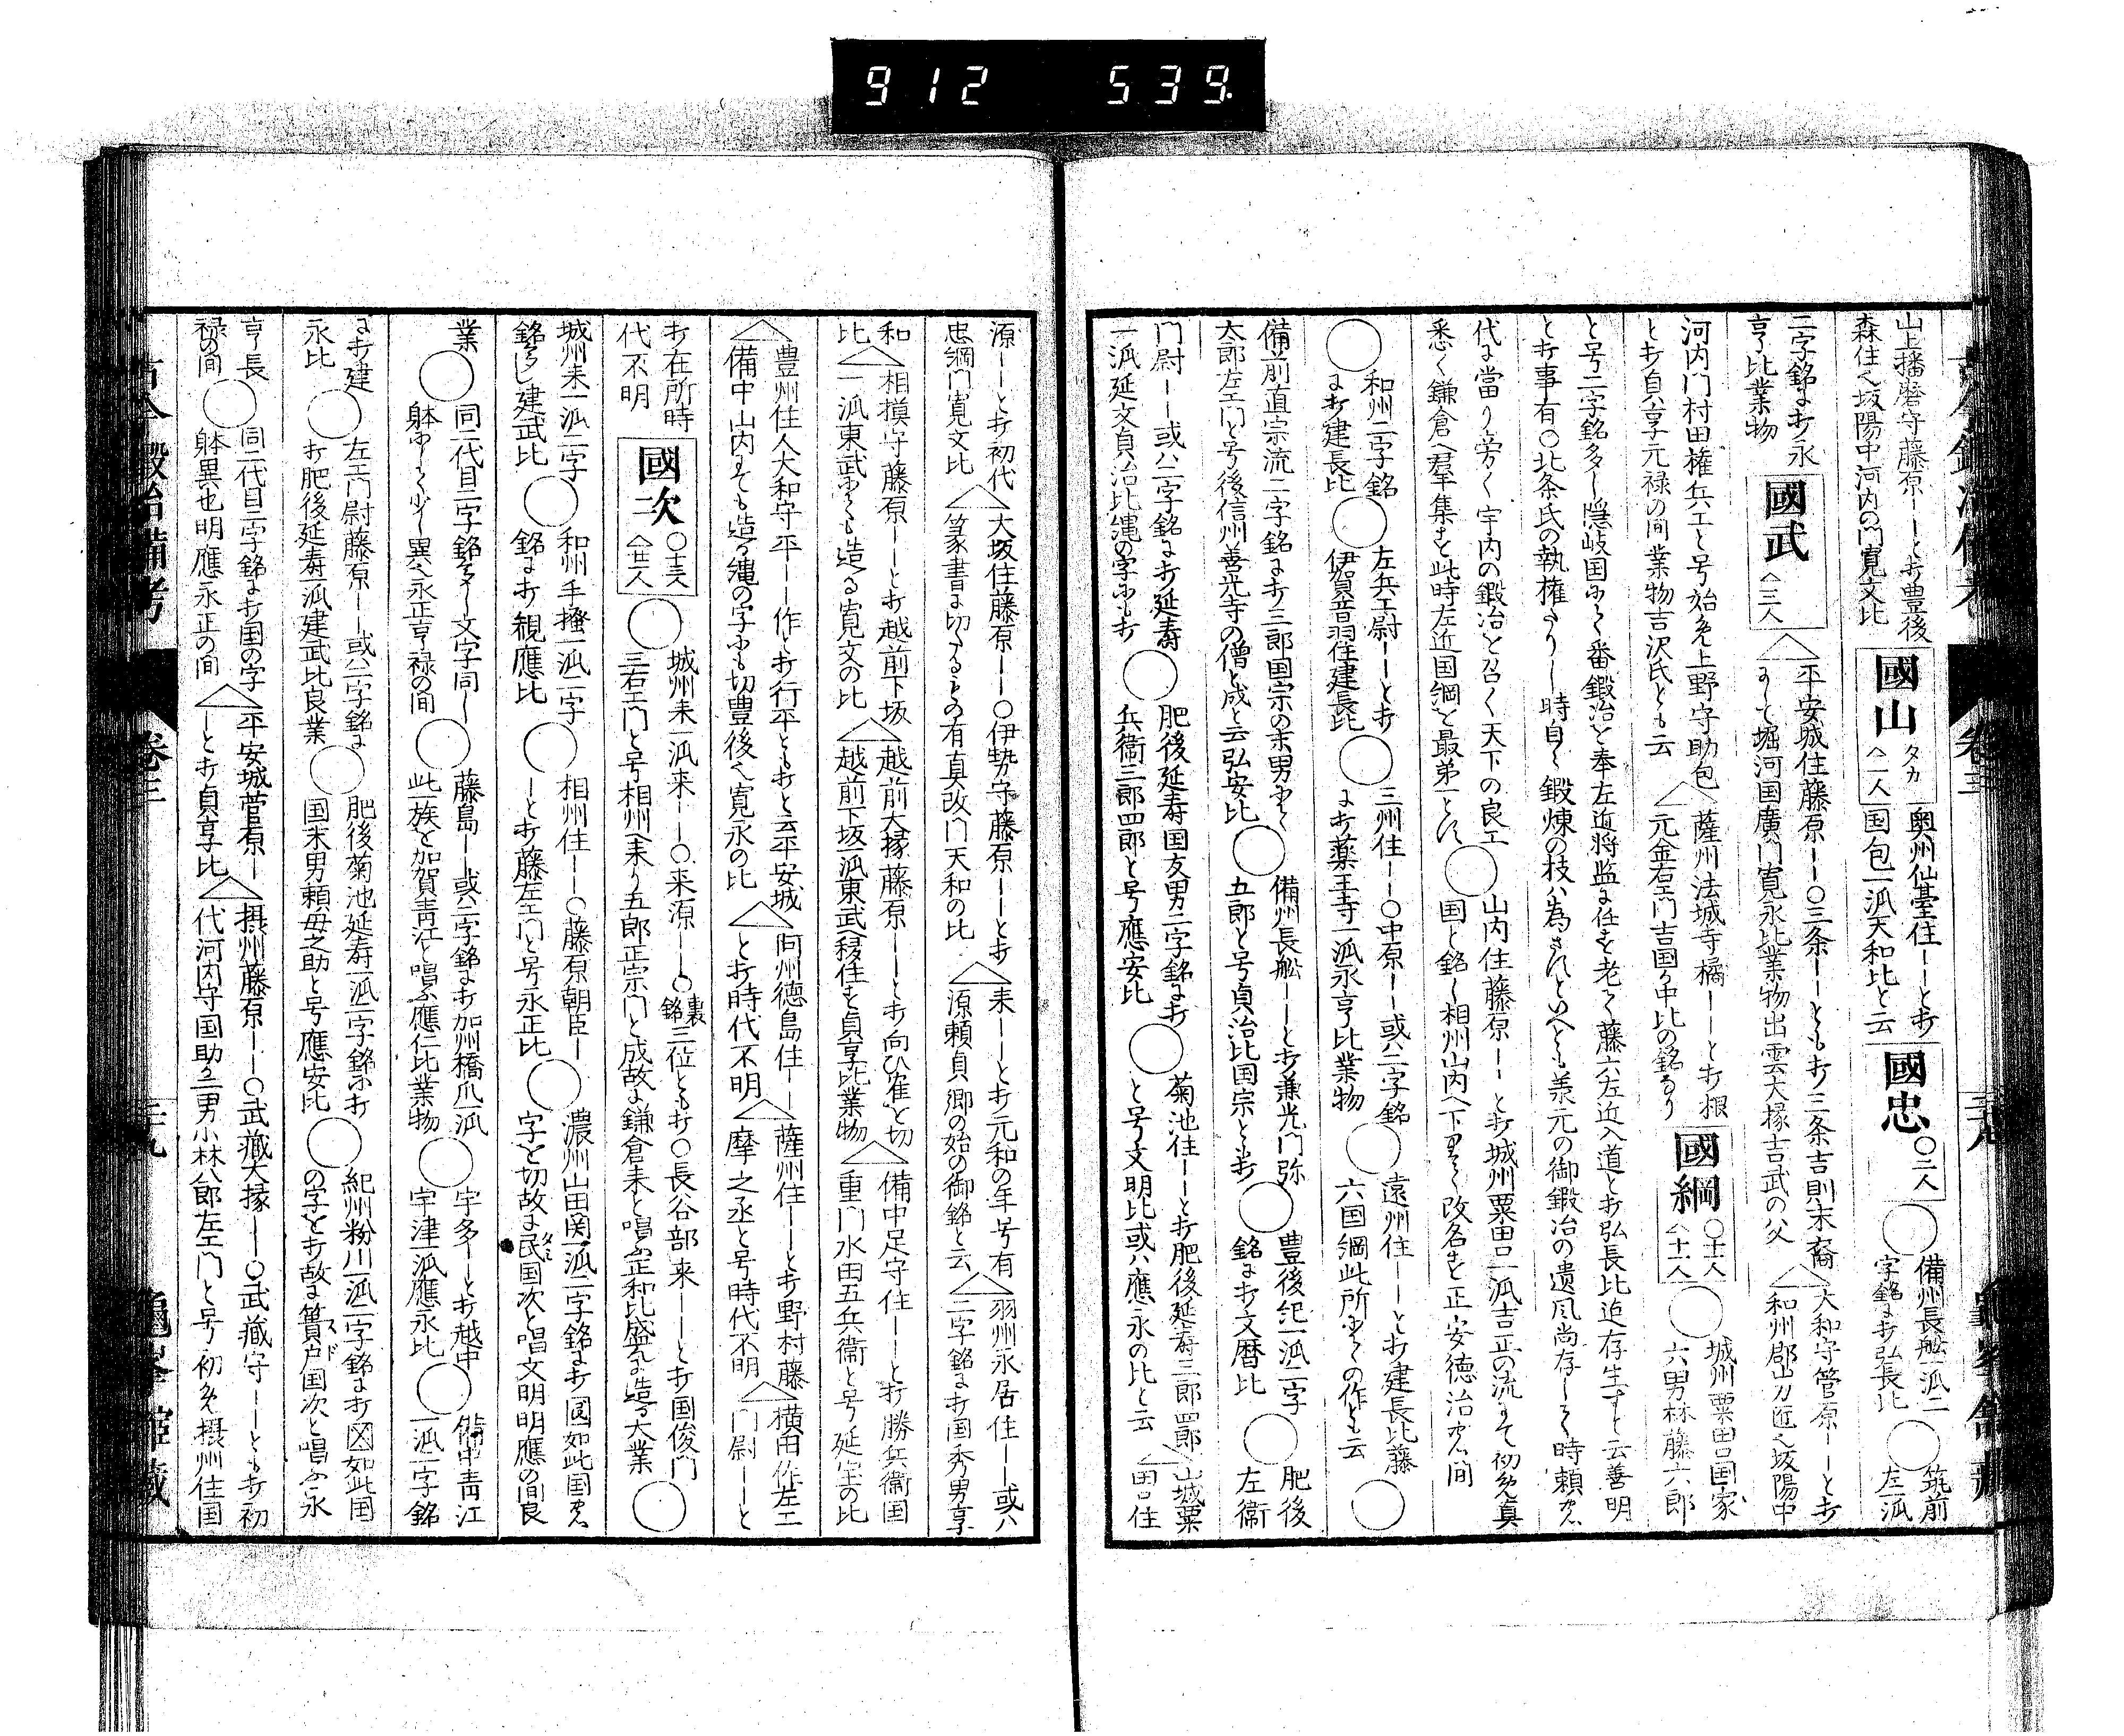 912 539.
山上播磨守藤原ーーと打豊後
森住乀坂陽中河内の門寛文比
國山 タカ
〈一人
奥州仙臺住ーーと打
国包一派天和比と云
國忠 〇二人
備州長舩一派二
字銘ニ打弘長比
筑前
左一派
二字銘ニ打永
亨比業物
國武 〈三人
平安城住藤原ーー〇三条ーーとも打三条吉則末裔
堀河国廣門寛永比業物出雲大掾吉武の父
大和守管原ーーと打
和州郡山乃近乀坂陽中
河内門村田権兵エと号始免上野守助包
と打貞享元禄の間業物吉沢氏とも云
薩州法城寺橘ーーと打根
元金右エ門吉国乃中比の銘なり
國綱 〇十二人
〈十一人
城州粟田口国家
六男林藤六郎
と号二字銘多し隠岐国にて番鍛冶を奉左近将監に任す老て藤六左近入道と打弘長比迄存生すと云善明
と打事有〇北条氏の執権たりし時自ら鍛煉の枝ハ為されといへとも養元の御鍛冶の遺風尚存して時頼
代に當り旁く宇内の鍛冶を召く天下の良工
悉く鎌倉へ羣集す此時左近国綱を最第一とす
山内住藤原ーーと打城州粟田口一派吉正の流にて初免真
国と銘し相州山内へ下りて改名す正安徳治間
和州二字銘
ニ打建長比
左兵エ尉ーーと打
伊賀音羽住建長比
三州住ーー〇中原ーー或ハ二字銘
ニ打薬王寺一派永亨比業物
遠州住ーーと打建長比藤
六国綱此所にての作とも云
備前直宗流二字銘ニ打三郎国宗の末男にて
太郎左エ門と号後信州善光寺の僧と成と云弘安比
備州長舩ーーと打兼光門弥
五郎と号貞治比国宗とも打
豊後紀一派二字
銘ニ打文暦比
肥後
左衛
門尉ーー或ハ二字銘ニ打延寿
一派延文貞治比縄の字にも打
肥後延寿国友男二字銘ニ打
兵衛三郎四郎と号應安比
菊池住ーーと打肥後延寿三郎四郎
と号文明比或ハ應永の比と云
山城粟
田口住
源ーーと打初代
忠綱門寛文比
大坂住藤原ーー〇伊勢守藤原ーーと打
篆書ニ切たるもの有真改門天和の比
来ーーと打元和の年号有
源頼貞卿の始の御銘と云
羽州永居住ーー或ハ
二字銘ニ打国秀男享
和
比
相摸守藤原ーーと打越前下坂
一派東武にても造る寛文の比
越前大掾藤原ーーと打向ひ崔を切
越前下坂派東武へ移住す貞享比業物
備中足守住ーーと打勝兵衛国
重門水田五兵衛と号延宝の比
豊州住人大和守平ーー作と打行平とも打と云平安城
備中山内にても造る縄の字にも切豊後乀寛永の比
阿州徳島住ーー
と打時代不明
薩州住ーーと打野村藤
摩之丞と号時代不明
横田作左エ
門尉ーーと
打在所時
代不明
國次 〇十三人
〈廿二人
城州来一派来ーー〇来源ーー〇裏銘三位とも打〇長谷部来ーーと打国俊門
三右エ門と号相州へ来り五郎正宗門と成故に鎌倉来と唱ふ正和比盛んに造る大業
城州来一派二字
銘多し建武比
和州手掻一派二字
銘ニ打観應比
相州住ーー〇藤原朝臣ー
ーと打藤左エ門と号永正比
濃州山田関一派二字銘ニ打圀如此国
字を切故ニ民国次と唱文明明應の間良
業
同二代目二字銘多し文字同し
躰にて少し異乀永正亨禄の間
藤島ーー或ハ二字銘ニ打加州橋爪一派
此一族を加賀青江と唱ふ應仁比業物
宇多ーと打越中
宇津一派應永比
備中青江
一派二字銘
ニ打建
永比
左エ門尉藤原ーー或ハ二字銘ニ
打肥後延寿一派建武比良業
肥後菊池延寿一派二字銘ニ打
国末男頼母之助と号應安比
紀州粉川一派二字銘ニ打如此国
の字を打故ニ簀戸国次と唱ふ永
亨長
禄の間
同二代目二字銘ニ打国の字
躰異也明應永正の間
平安城菅原ー
ーと打貞享比
摂州藤原ーー〇武蔵大掾ーー〇武蔵守ーーとも打初
代河内守国助乃二男小林八郎左エ門と号初免摂州住国
古今鍛冶備考 卷三 三十九 龜峯館藏